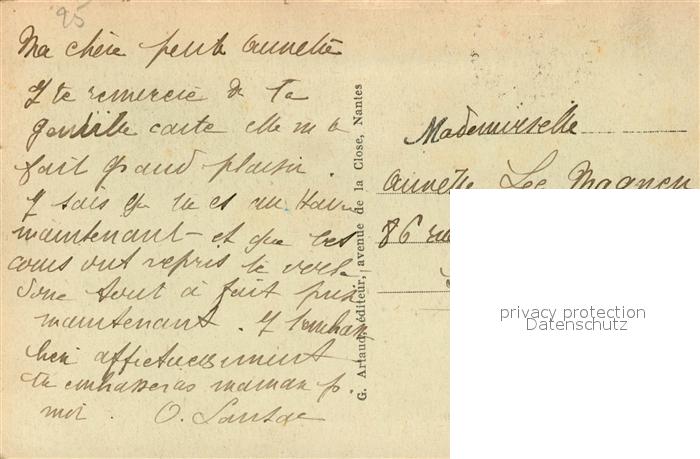 25
Ma chère petite Annette
J te remercie de ta
gentille carte elle m'a
fait grand plaisir.
J sais que tu es au Havre
maintenant et que les
cours ont repris te voilà
donc tout à fait
maintenant. J t'embrasse
bien affectueusement
tu embrasseras maman p.
moi. O.
G. Artaud, éditeur, avenue de la Close, Nantes
Mademoiselle
Annette Le Magnen
86 rue
privacy protection
Datenschutz